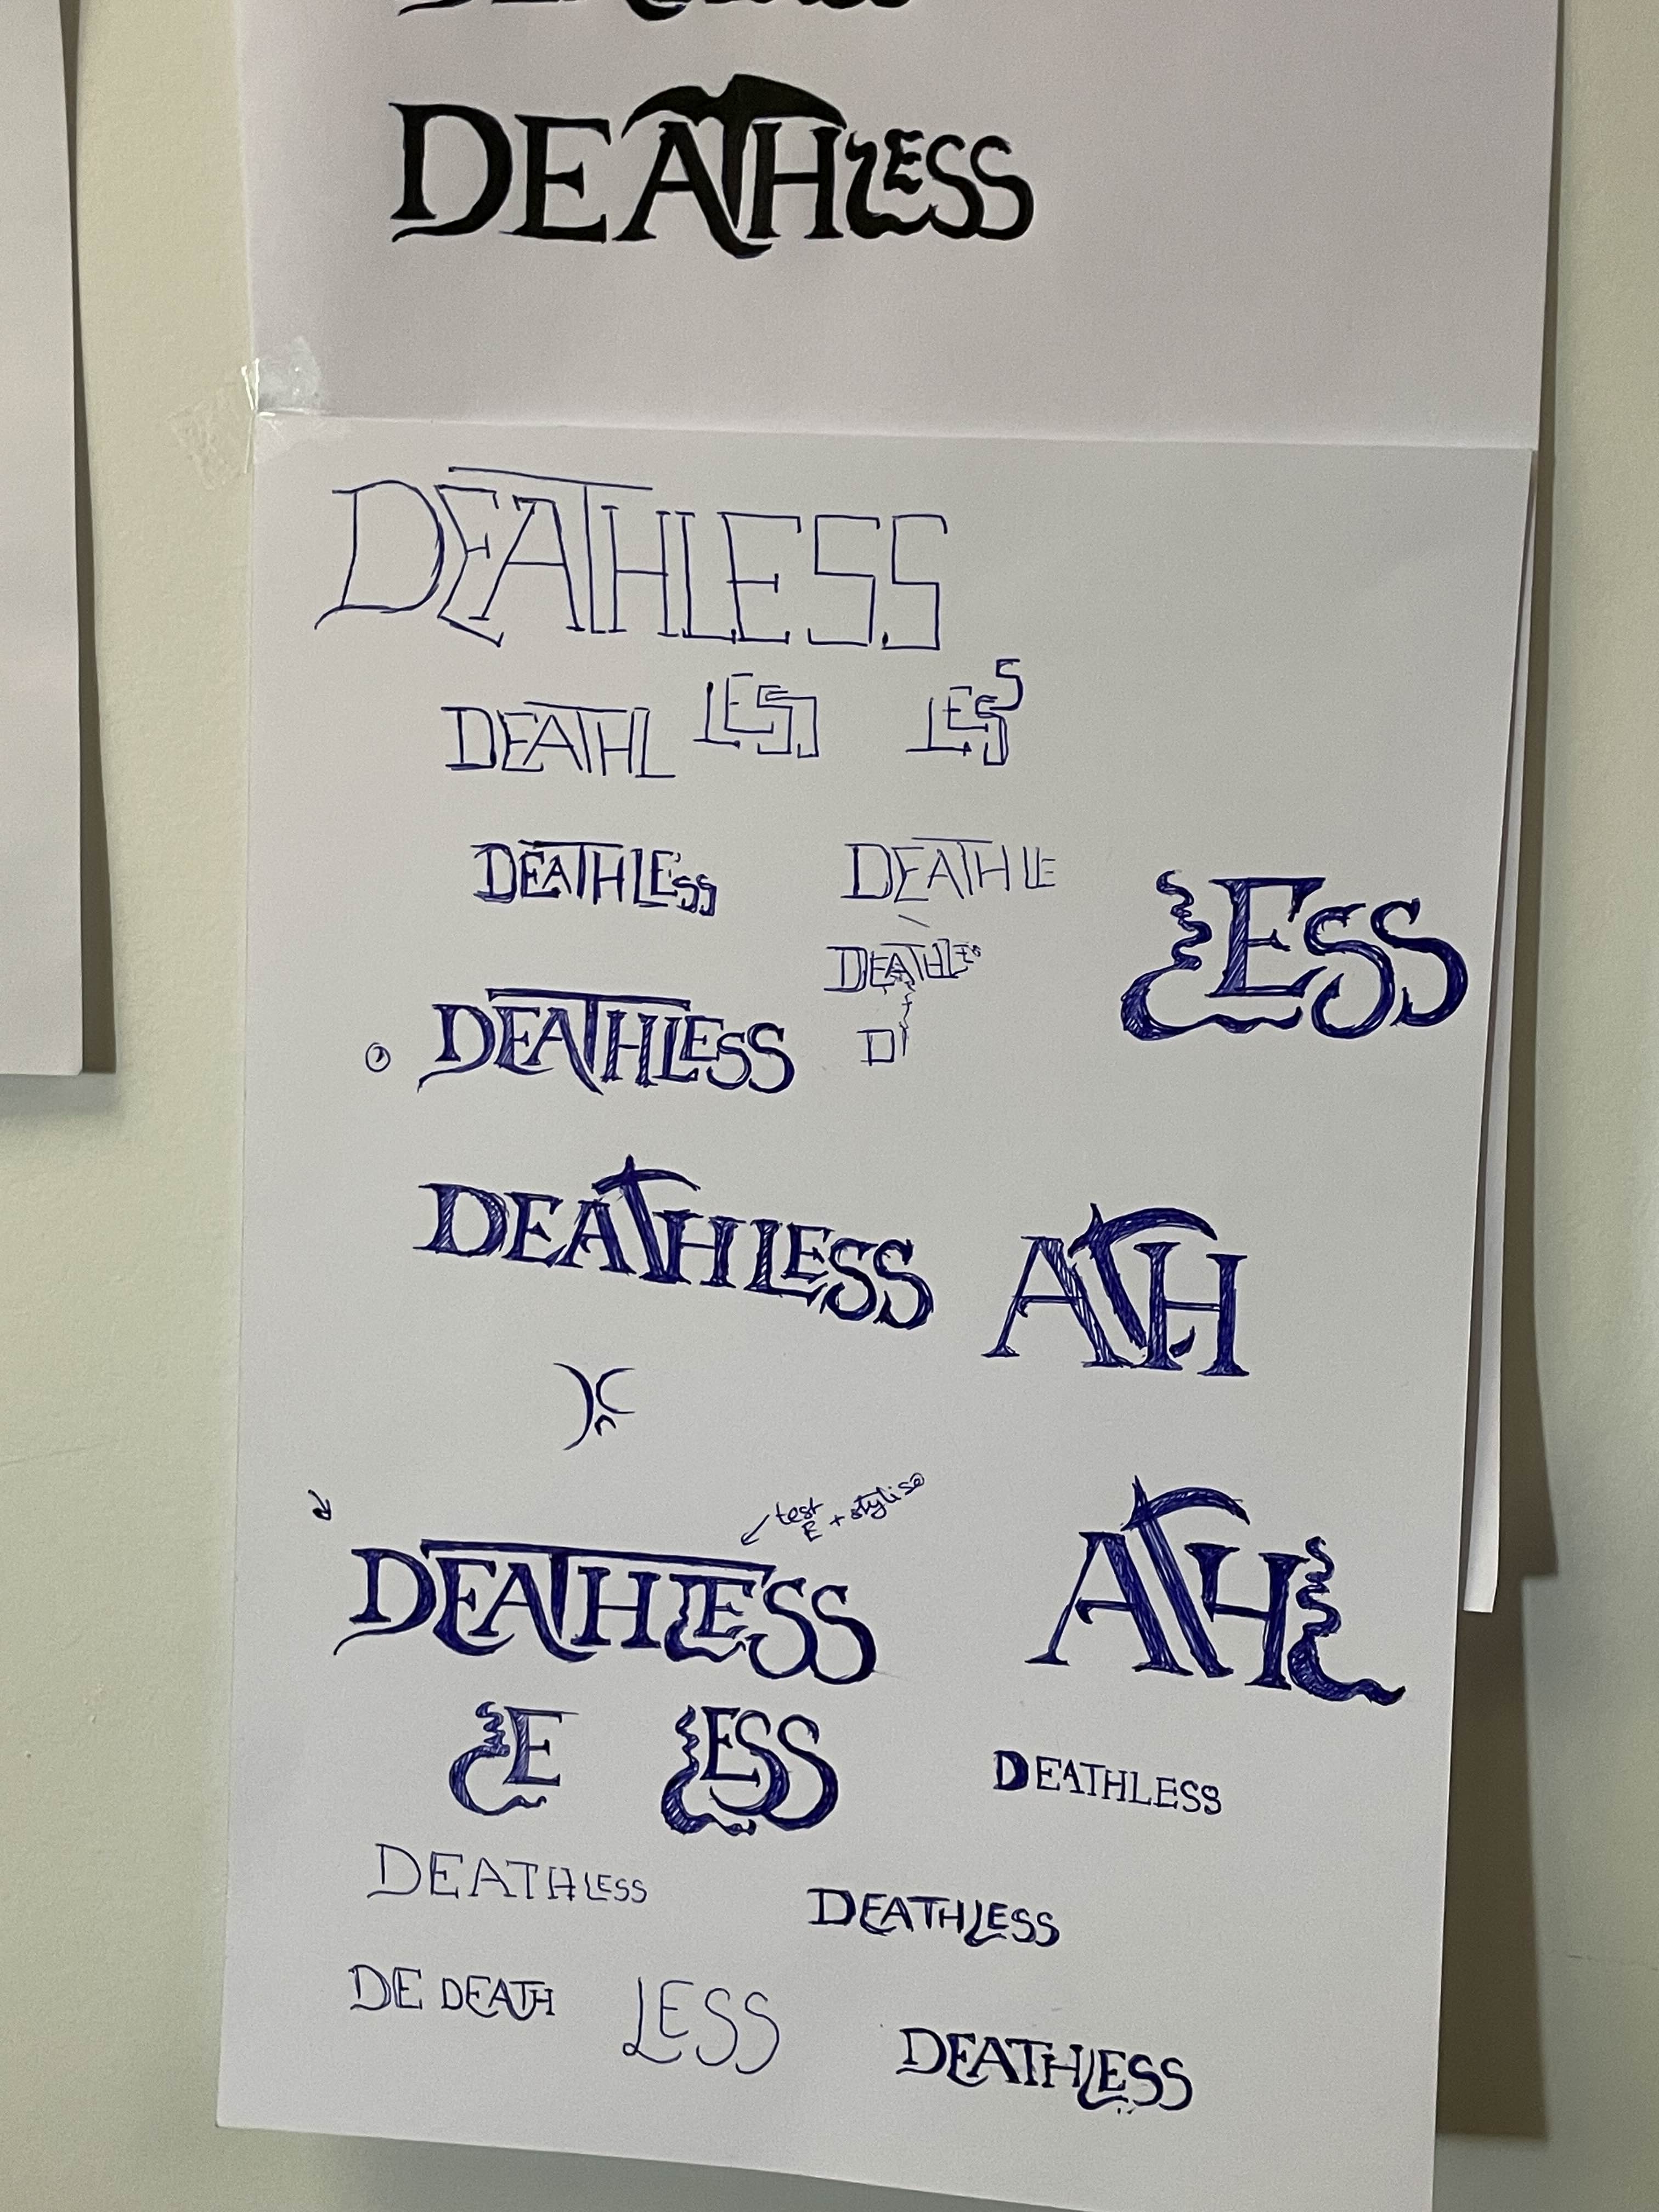 DEATHLESS
DEATHLESS
DEATHL LESS LESS
DEATHLESS DEATH LE
LESS
DEATHLES
D
DEATHLESS
DEATHLESS ATH
test
E + stylise
DEATHLESS ATHL
LE LESS DEATHLESS
DEATHLESS DEATHLESS
DE DEATH LESS DEATHLESS